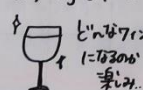 どんなワイン
になるのか
楽しみ..